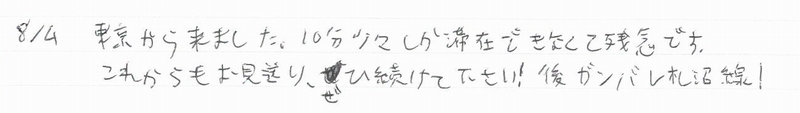 8/4 東京から来ました。10分少々しか滞在できなくて残念です。
これからもお見送り、ぜひ続けて下さい! 後ガンバレ札沼線!